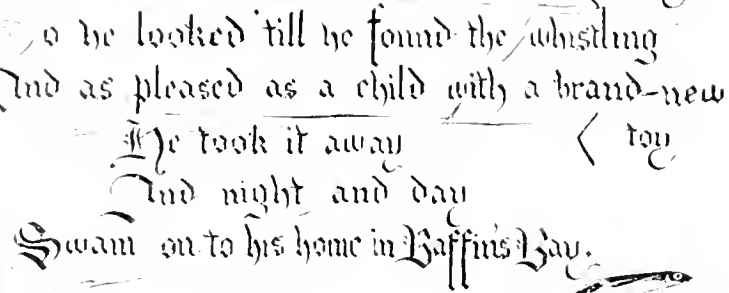 So he looked till he found the whistling
And as pleased as a child with a brand-new
He took it away < toy,
And night and day
Swam on to his home in Baffin's Bay.